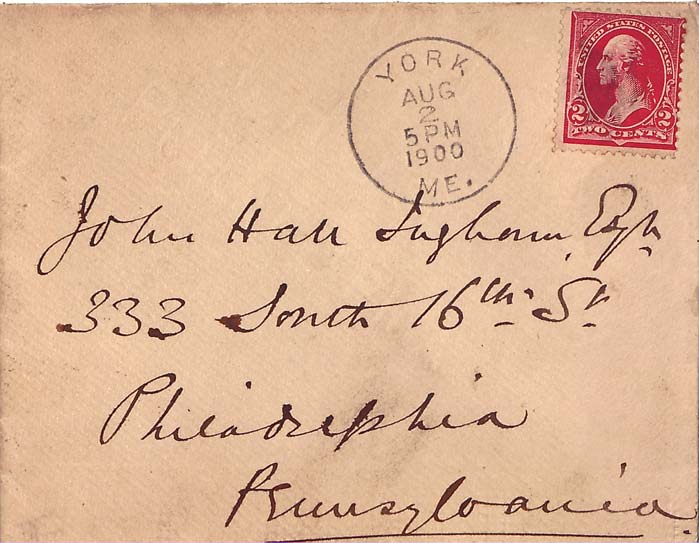 YORK
AUG
2
5 PM
1900
ME.
UNITED STATES POSTAGE
2 2
TWO CENTS
John Hall Ingham, Esqr
333 South 16th St
Philadelphia
Pennsylvania